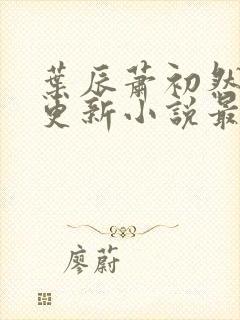 葉辰蕭初然
更新小說最
廖蔚